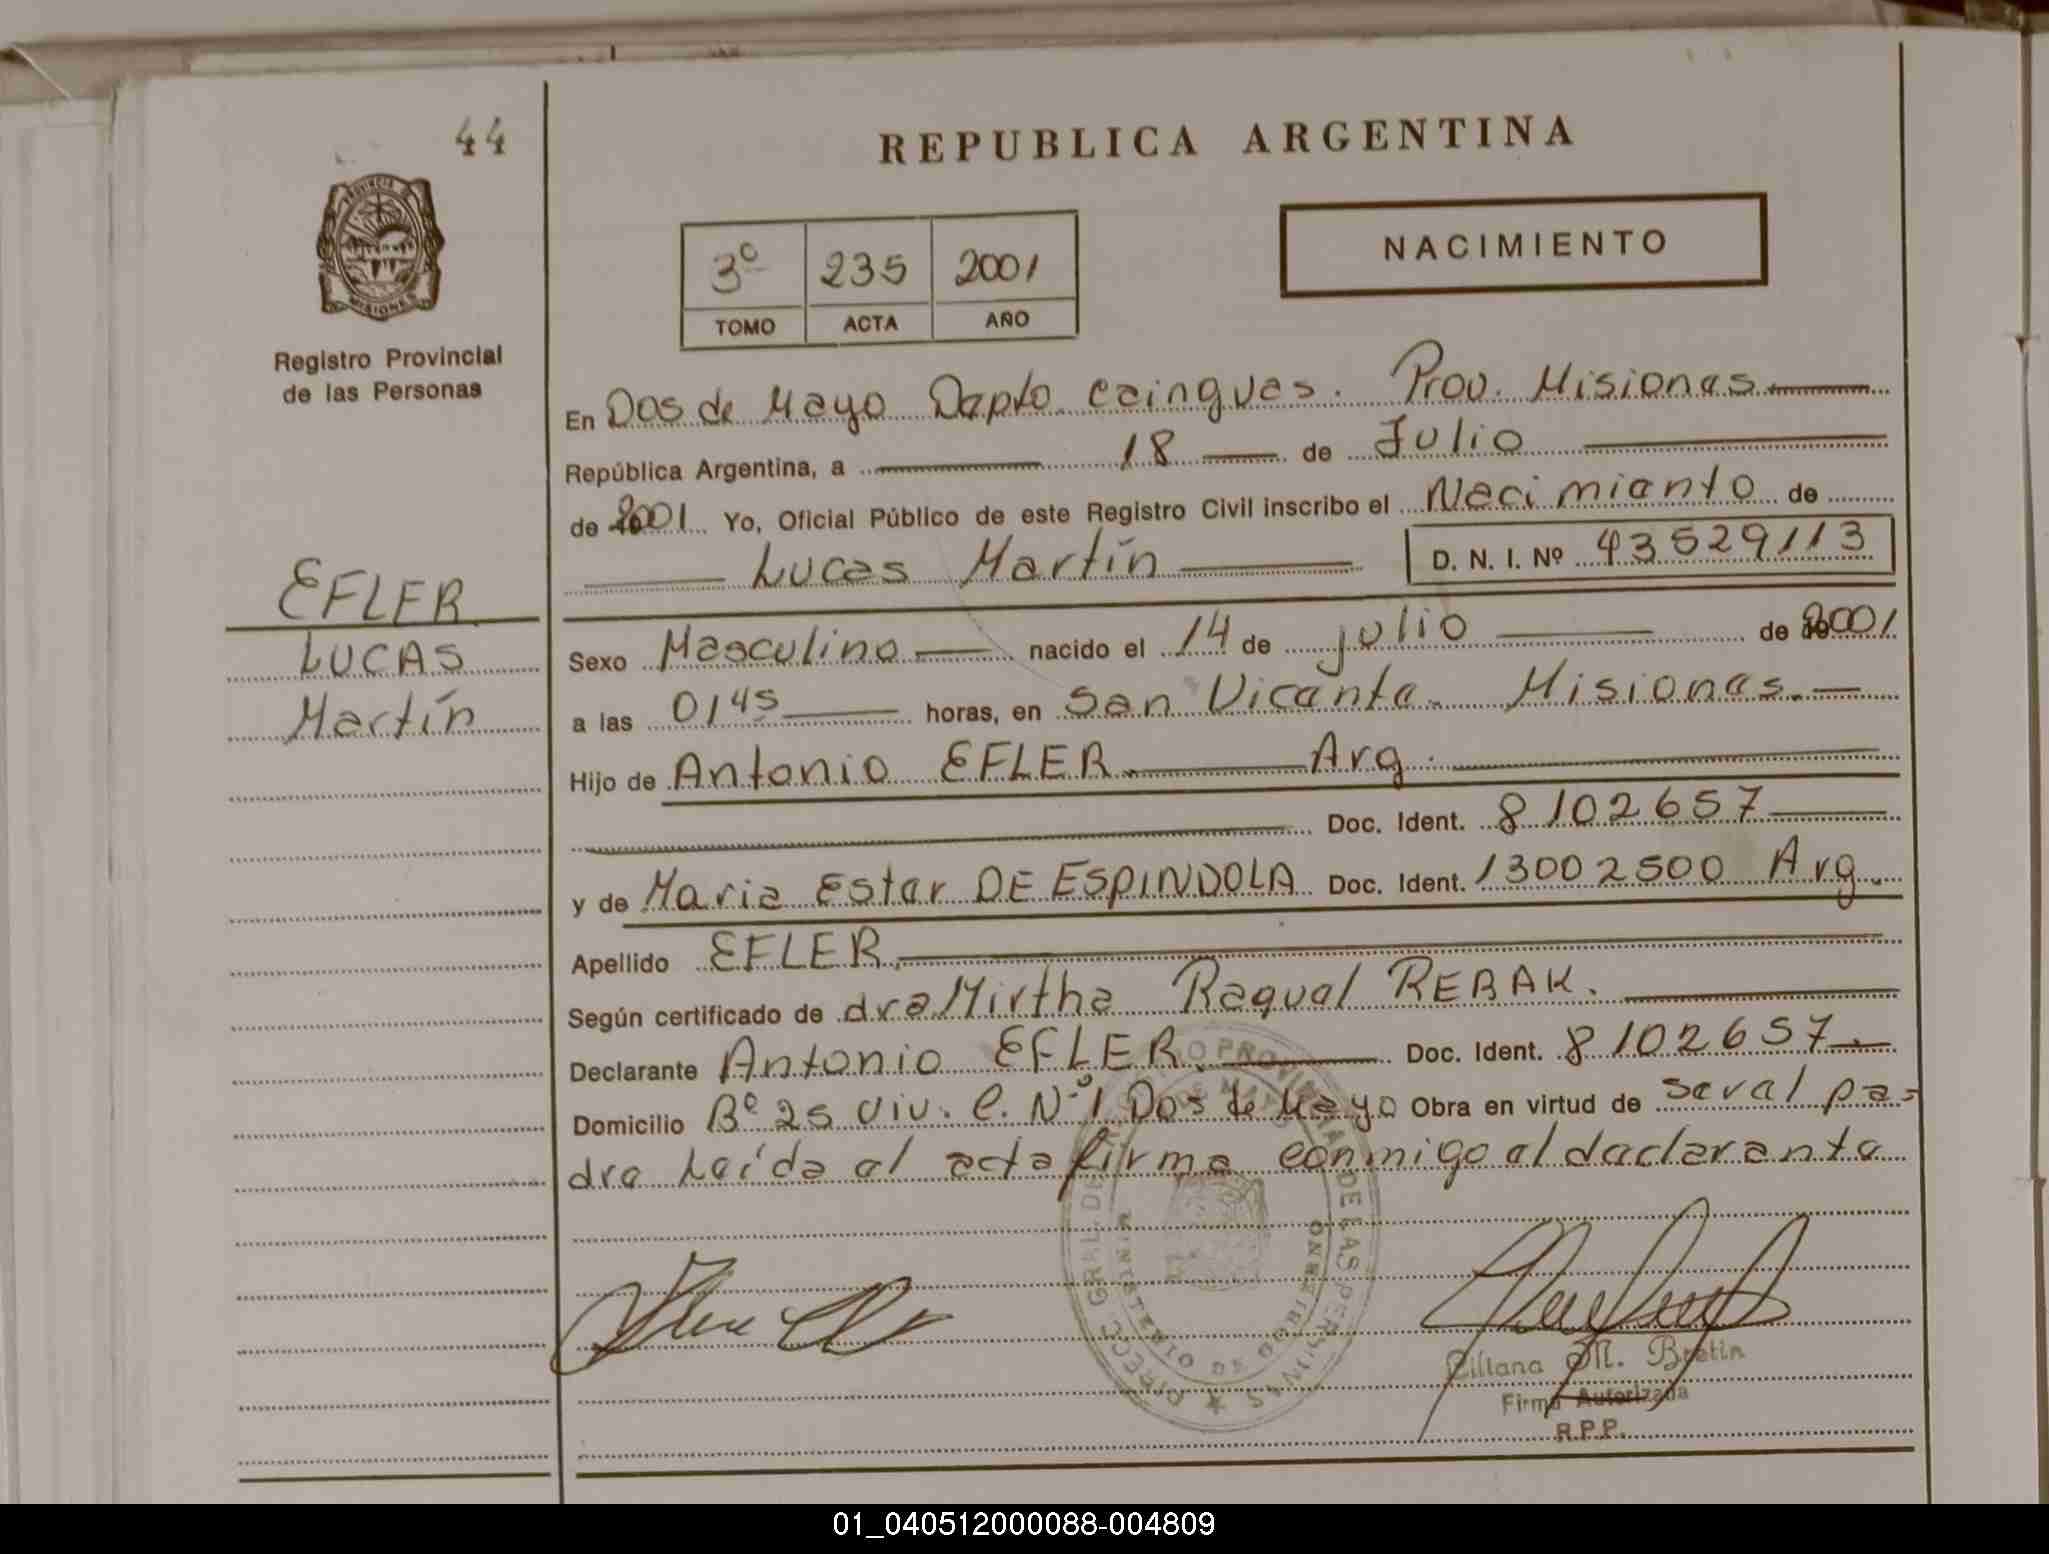 44
REPUBLICA ARGENTINA
PROVINCIA DE
MISIONES
3º 235 2001
TOMO ACTA AÑO
NACIMIENTO
Registro Provincial
de las Personas
En Dos de Mayo Dapto. Cainguas. Prov. Misiones
República Argentina, a 18 de Julio
de 2001 Yo, Oficial Público de este Registro Civil inscribo el Nacimiento de
Lucas Martín D. N. I. Nº 43529113
EFLER
LUCAS
Martín
Sexo Masculino nacido el 14 de julio de 2001
a las 0145 horas, en San Vicente. Misiones.
Hijo de Antonio EFLER. Arg.
Doc. Ident. 8102657
y de Maria Ester DE ESPINDOLA Doc. Ident. 13002500 Arg.
Apellido EFLER.
Según certificado de dra Mirtha Raquel REBAK.
Declarante Antonio EFLER. Doc. Ident. 8102657.
Domicilio Bº 25 viv. C. Nº1 Dos de Mayo Obra en virtud de ser el pa-
dre Leída el acta firma conmigo el declarante
DIRECC GRAL DE
PROVINCIAL DE LAS PERSONAS
MINISTERIO DE GOBIERNO
Liliana M. Bretin
Firma Autorizada
R.P.P.
01_040512000088-004809